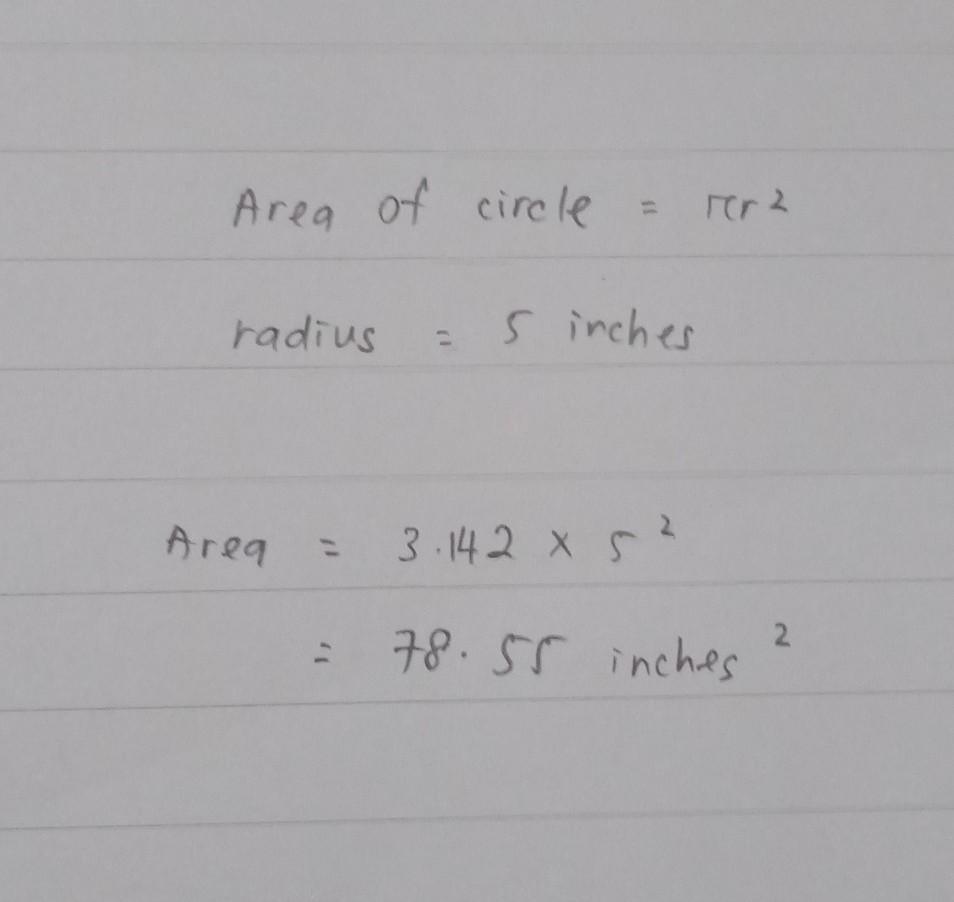 Area of circle = πr²
radius = 5 inches
Area = 3.142 x 5²
= 78.55 inches²